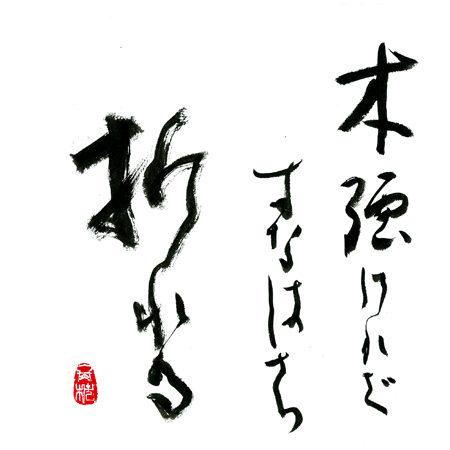 木強ければ
すなはち
折れる